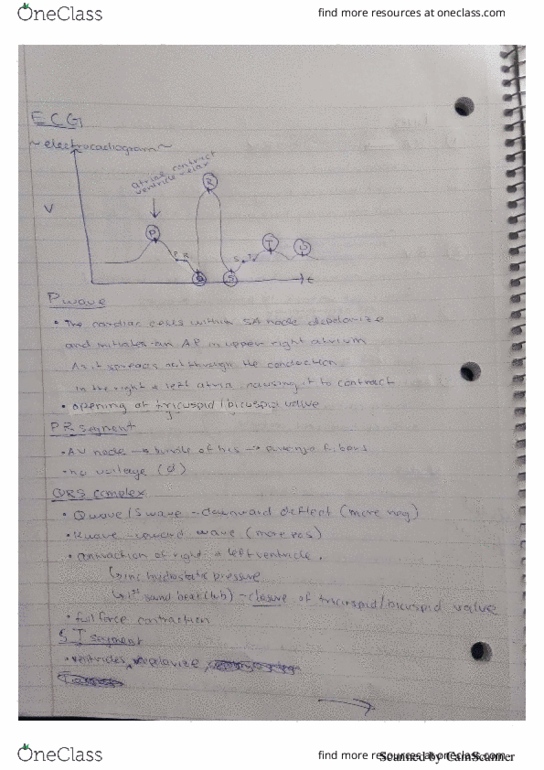 OneClass
find more resources at oneclass.com
ECG
~electrocardiogram~
atrial contract
ventricle relax
V
R
P
T
U
P R
S T
Q
S
t
P wave
• The cardiac cells within SA node depolarize
and initiates an AP in upper right atrium
As it spreads through the conduction
in the right & left atria causing it to contract
• opening of tricuspid/bicuspid valve
PR segment
• AV node → bundle of his → fibers
• no voltage (Ø)
QRS complex
• Q wave/S wave - downward deflect (more neg)
• R wave - upward wave (more pos)
• contraction of right & left ventricle.
↳ inc hydrostatic pressure
↳ 1st sound beat (lub) - closure of tricuspid/bicuspid valve
• full force contraction
S T segment
• ventricles
OneClass
find more resources at oneclass.com
Scanned by CamScanner